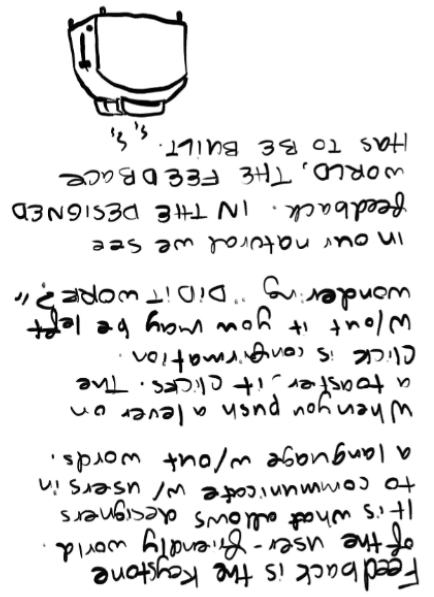 Feedback is the keystone
of the user-friendly world.
It is what allows designers
to communicate w/ users in
a language w/out words.
When you push a lever on
a toaster, it clicks. The
click is confirmation.
w/out it you may be left
wondering "DID IT WORK?"
in our natural we see
feedback. IN THE DESIGNED
WORLD, THE FEEDBACK
HAS TO BE BUILT.